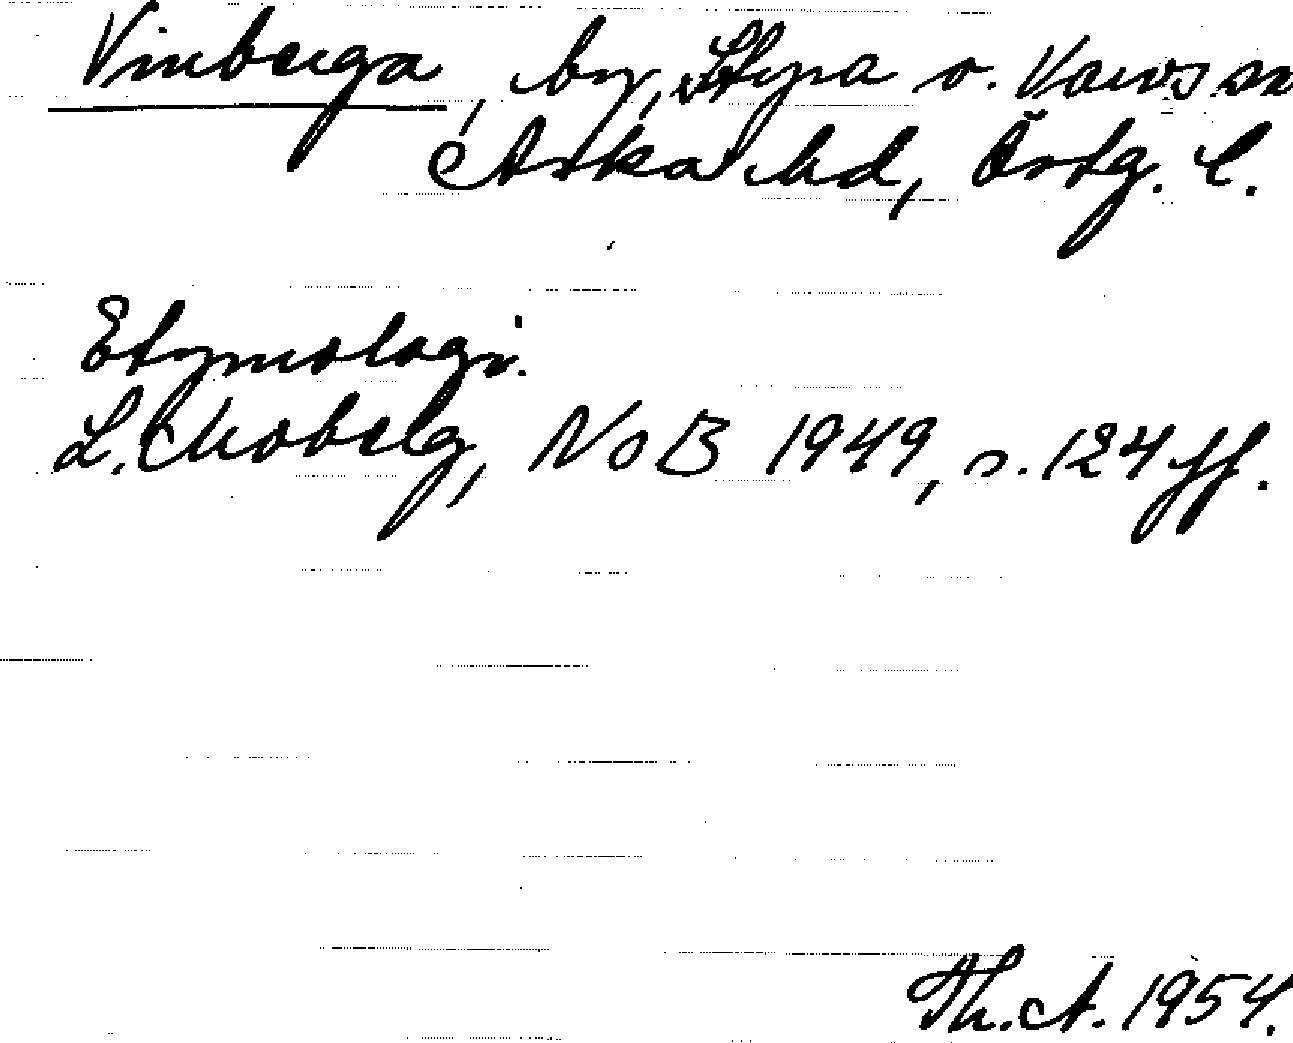 Vinberga, by, Styra o. Varvs sn
Aska hd, Östg. l.
Etymologi.
L. Moberg, NoB 1949, s. 124 ff.
Th. A. 1954.